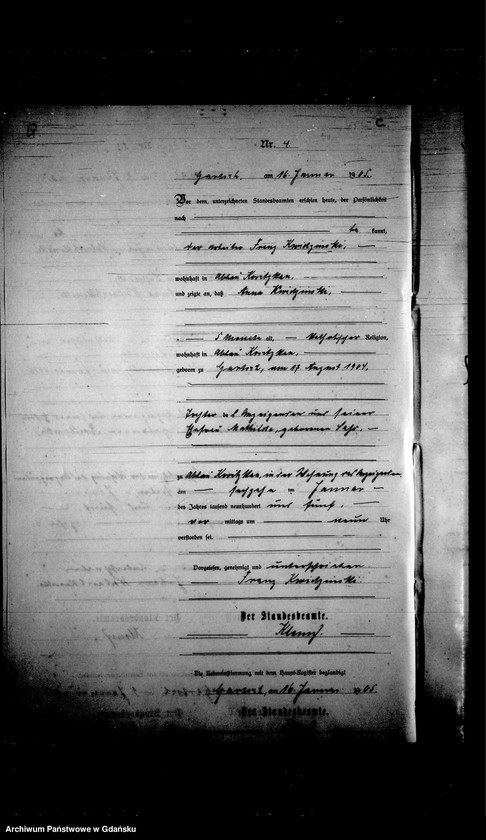 C.
Nr. 4.
am 16. Januar 1905.
Vor dem unterzeichneten Standesbeamten erschien heute, der Persönlichkeit
nach
be kannt,
der Arbeiter Franz Kwidzinski,
wohnhaft in Abbau
und zeigte an, daß Anna Kwidzinski,
5 Monate alt, katholischer Religion,
wohnhaft in Abbau
geboren zu am 17. August 1904,
Tochter des Anzeigenden und seiner
Ehefrau Mathilde, geborenen
zu Abbau in der Wohnung des Anzeigenden
am sechzehn ten Januar
des Jahres tausend neunhundert und fünf,
vor mittags um neun Uhr
verstorben sei.
Vorgelesen, genehmigt und unterschrieben.
Franz Kwidzinski.
Der Standesbeamte.
Die Uebereinstimmung mit dem Haupt-Register beglaubigt
am 16. Januar 1905.
Der Standesbeamte.
Archiwum Państwowe w Gdańsku